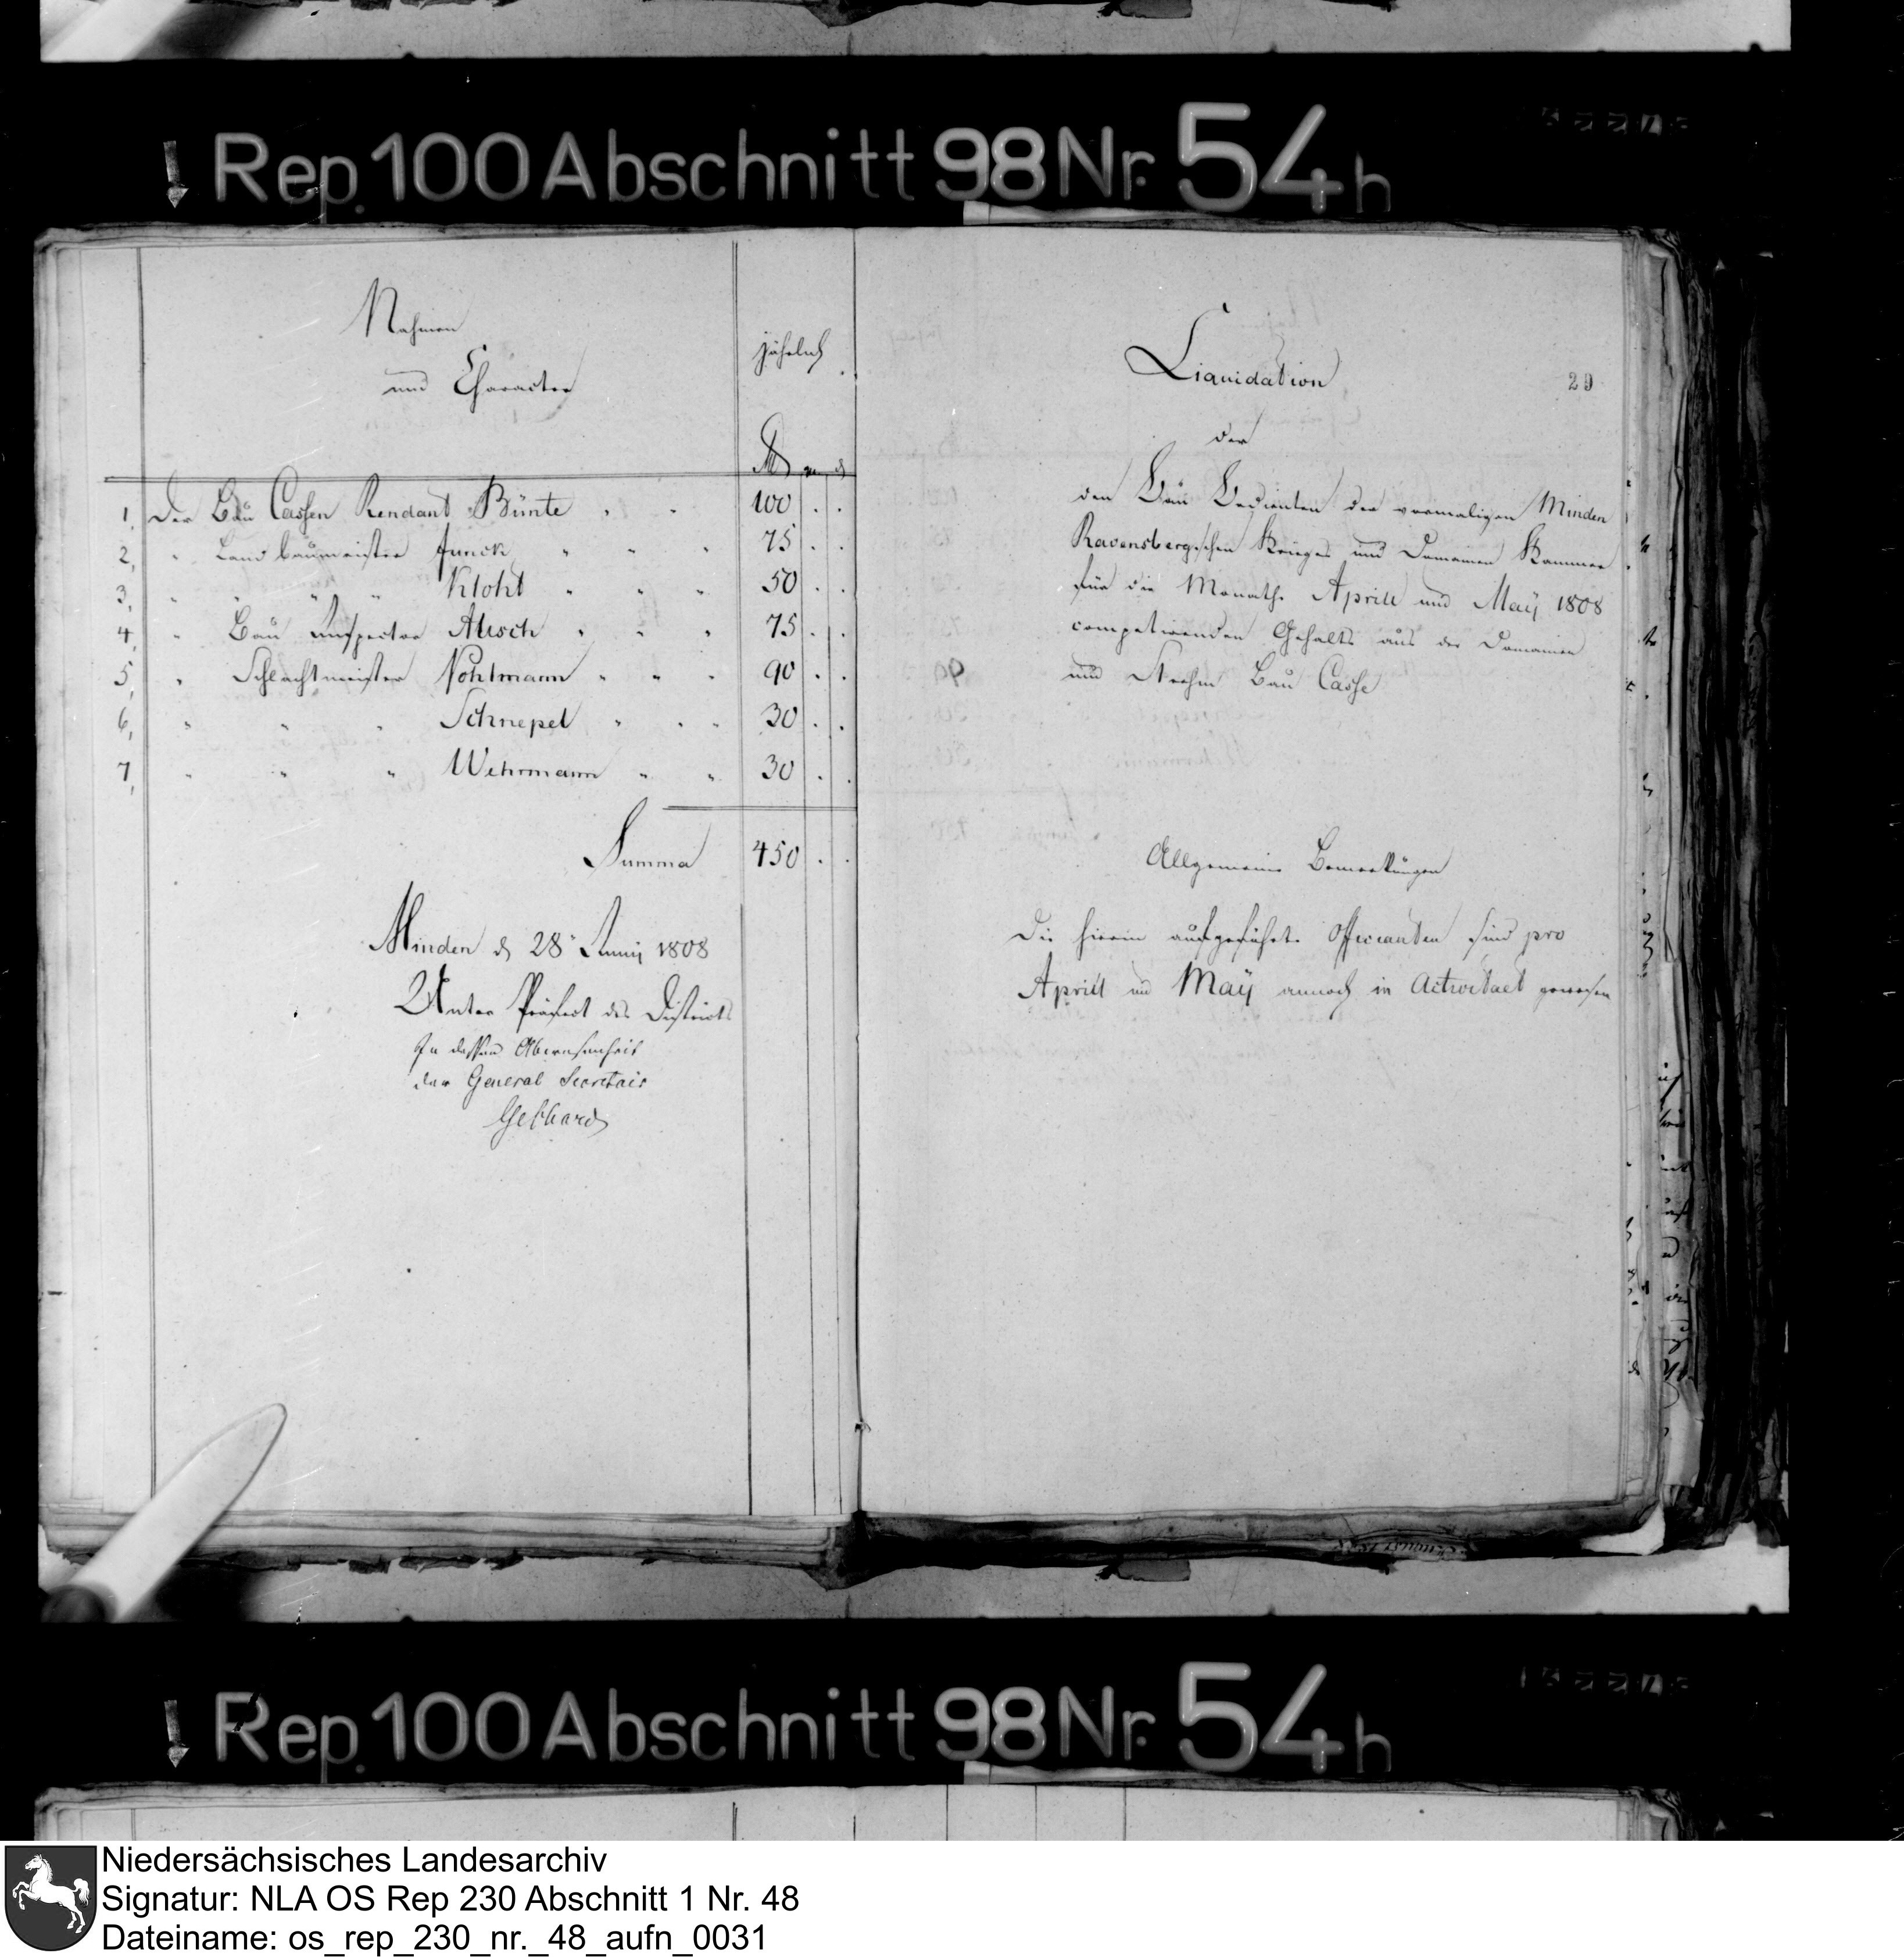 Rep. 100 Abschnitt 98 Nr. 54 h
Nahmen
und Character
jährlich
1, Der Bau Cassen Rendant Bünte " " 100 . .
2, " Landbaumeister Funck " " " 75 . .
3, " " " " Kloht " " " 50 . .
4, " Bau Inspector Alisch " " " 75 . .
5, " Schlachtmeister Pohlmann " " " 90 . .
6, " " " Schnepel " " " 30 . .
7, " " " Wehrmann " " 30 . .
Summa 450 . .
Minden d 28 Junij 1808
Unter Präfect des Districts
In dessen Abwesenheit
der General Secretair
Gebhard
Liquidation
29
der
den Bau Bedienten der vormaligen Minden
Ravensbergschen Krieges und Domainen Kammer
für die Monathe Aprill und May 1808
competirenden Gehalts aus der Domainen
und Bau Casse
Allgemeine Bemerkungen
Die hierin aufgeführte Officianten sind pro
Aprill und May annoch in Activitaet gewesen
Rep. 100 Abschnitt 98 Nr. 54 h
Niedersächsisches Landesarchiv
Signatur: NLA OS Rep 230 Abschnitt 1 Nr. 48
Dateiname: os_rep_230_nr._48_aufn_0031